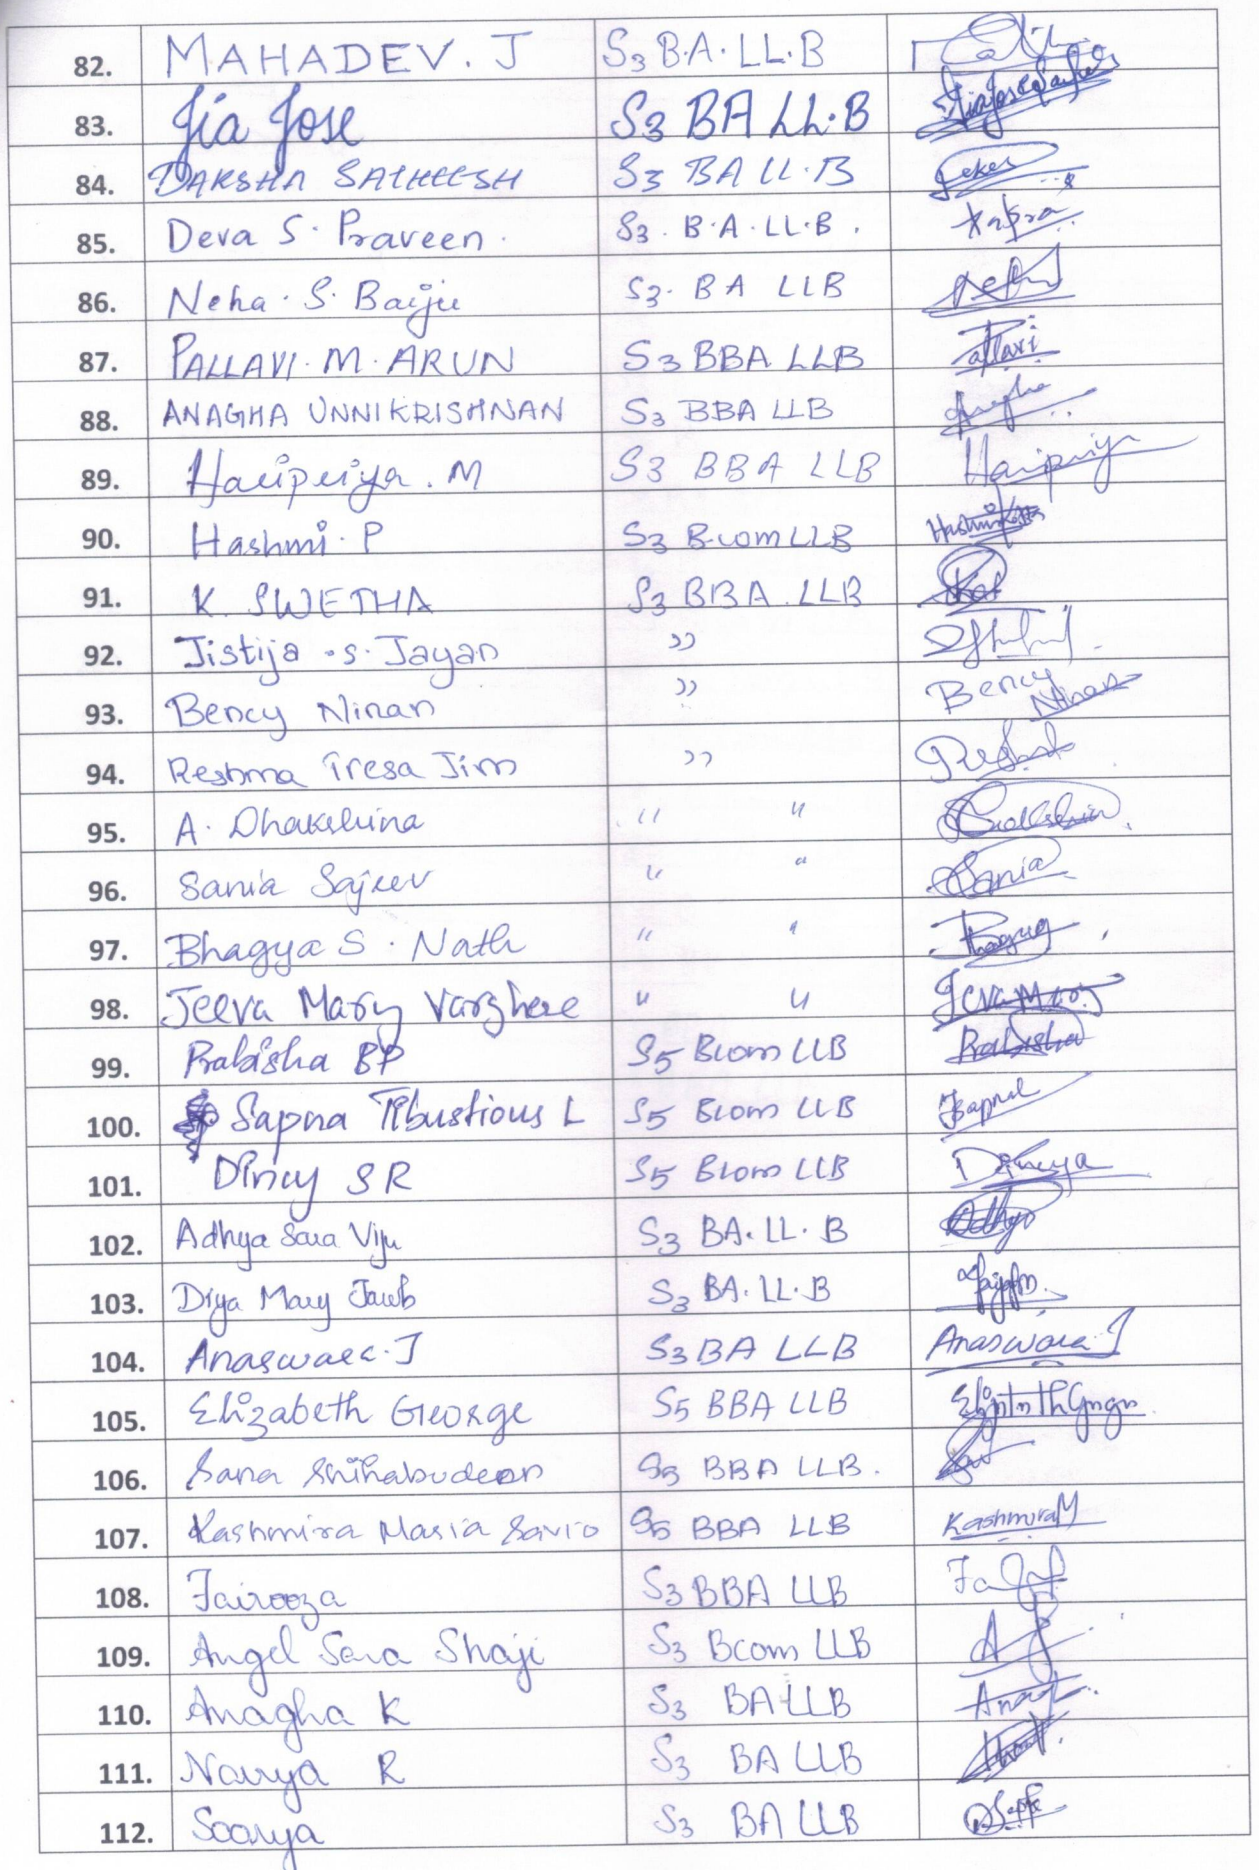 82. MAHADEV. J S3 B.A. LL.B
83. Jia Jose S3 BA LL.B Jia Jose
84. DAKSHA SATHEESH S3 BA LL.B
85. Deva S. Praveen. S3. B.A. LL.B.
86. Neha. S. Baiju S3. BA LLB
87. PALLAVI. M. ARUN S3 BBA LLB Pallavi
88. ANAGHA UNNIKRISHNAN S3 BBA LLB Anagha
89. Haripriya. M S3 BBA LLB Haripriya
90. Hashmi. P S3 B.com LLB Hashmi
91. K. SWETHA S3 BBA. LLB
92. Jistija .S. Jayan ,,
93. Bency Ninan ,, Bency Ninan
94. Reshma Tresa Jim ,,
95. A. Dhakshina " "
96. Sania Sajeev " " Sania
97. Bhagya S. Nath " "
98. Jeeva Mary Varghese " " Jeva Mary
99. Rabisha BP S5 Bcom LLB Rabisha
100. Sapna Tibustious L S5 Bcom LLB Sapna
101. Dincy SR S5 Bcom LLB
102. Adhya Sara Viju S3 BA. LL. B Adhya
103. Diya Mary Jacob S3 BA. LL. B
104. Anaswara. J S3 BA LLB Anaswara J
105. Elizabeth George S5 BBA LLB
106. Sana Shihabudeen S5 BBA LLB.
107. Kashmira Maria Savio S5 BBA LLB Kashmira M
108. Fairooza S3 BBA LLB
109. Angel Sara Shaji S3 Bcom LLB
110. Anagha K S3 BA LLB
111. Navya R S3 BA LLB
112. Soorya S3 BA LLB